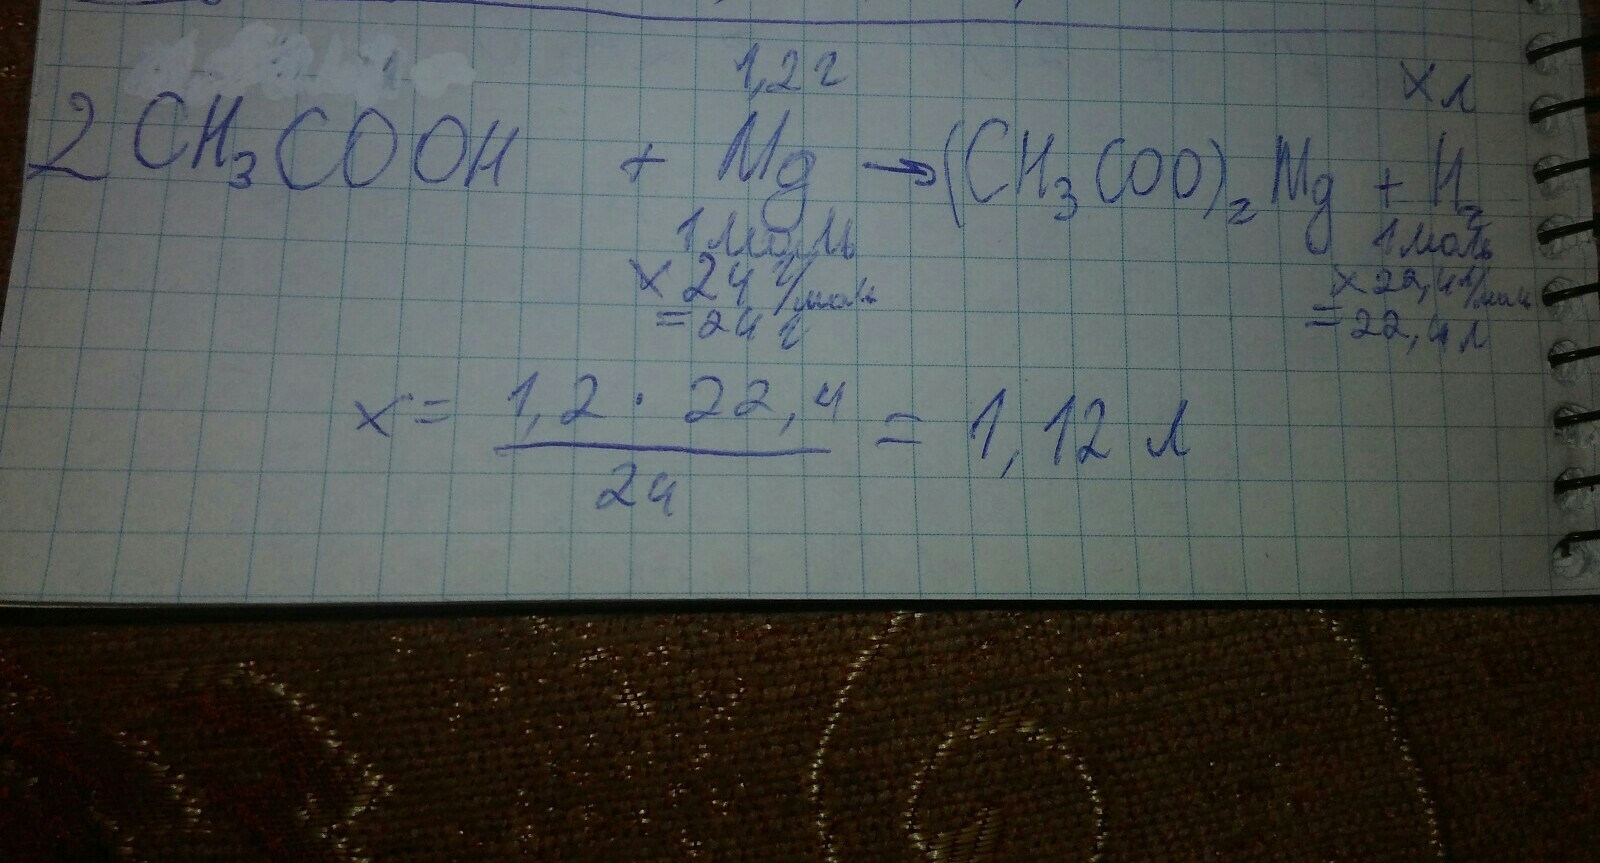 1,2 г
x л
2 CH₃COOH + Mg → (CH₃COO)₂ Mg + H₂
1 моль
1 моль
x 24 г/моль
x 22,4 л/моль
= 24 г
= 22,4 л
x = 1,2 · 22,4 / 24 = 1,12 л